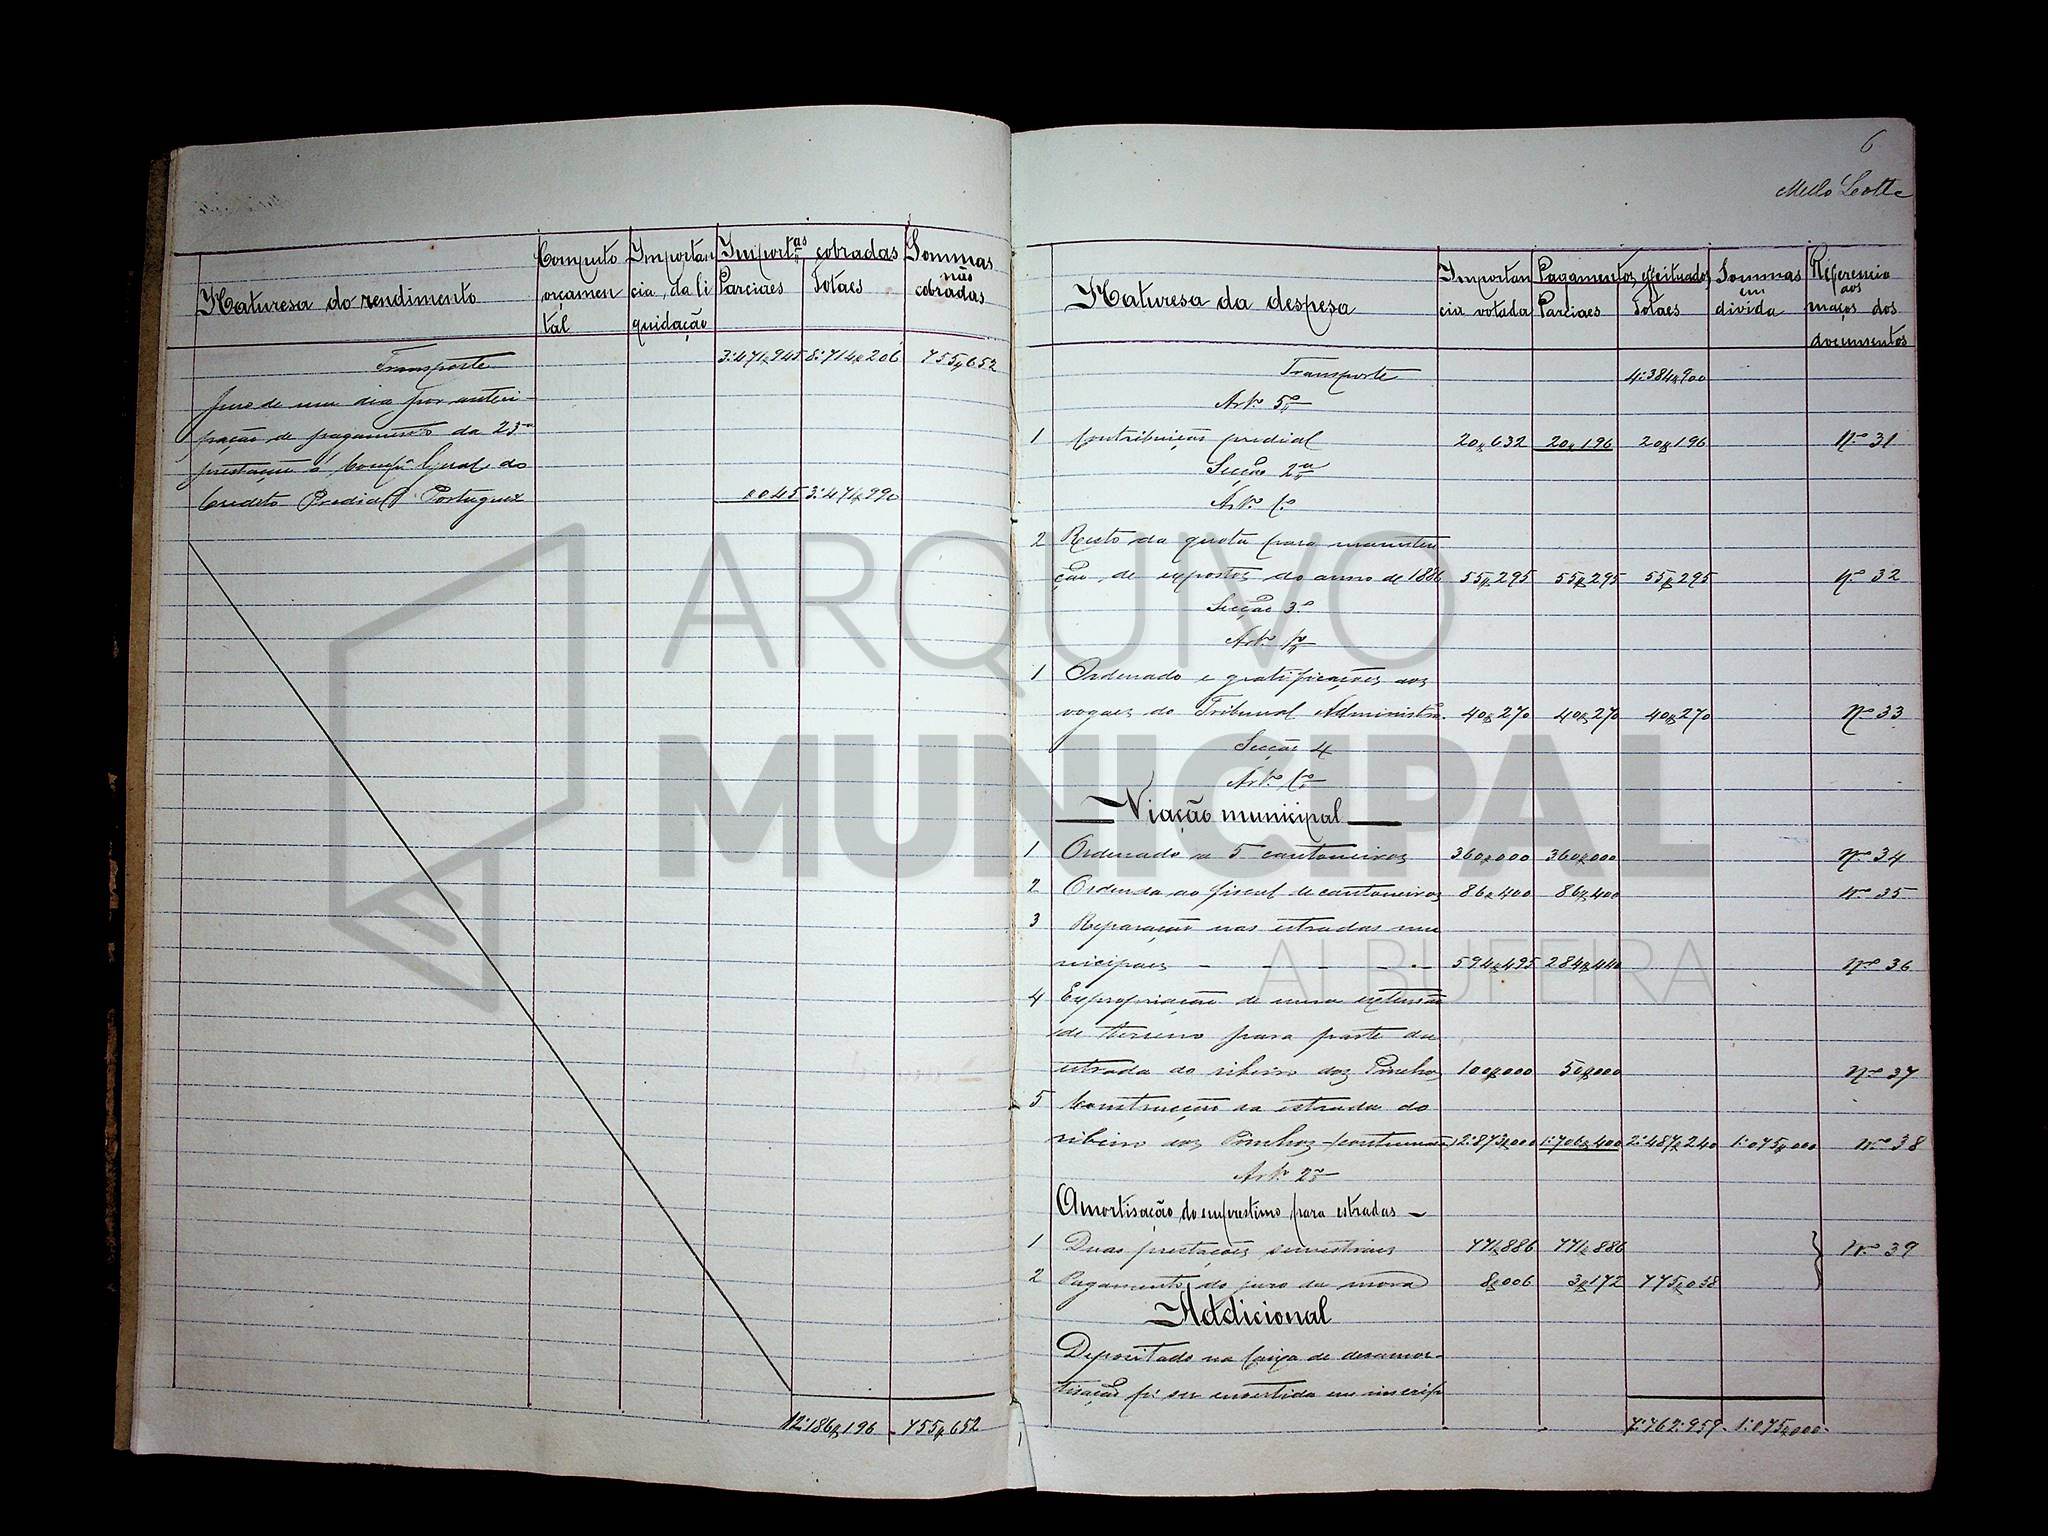 Naturesa do rendimento
Computo orçamental
Importancia da liquidação
Import.as cobradas
Parciaes
Totaes
Sommas não cobradas
Transporte 3:471,945 8:714,206 755,652
Juro de um dia por anteri-
pação de pagamento da 23.a
prestação á Comp.a Geral do
Credito Predial Portuguez ,045 3:471,990
12:186,196 755,652
6
Mello Leotte
Naturesa da despesa
Importancia votada
Pagamentos effeituados
Parciaes
Totaes
Sommas em divida
Referencia aos maços dos documentos
Transporte 4:384,900
Art.o 5.o
1 Contribuição predial 20,632 20,196 20,196 N.o 31
Secção 2.a
Art.o 1.o
2 Resto da quota para manuten
ção de expostos do anno de 1886 55,295 55,295 55,295 N.o 32
Secção 3.a
Art.o 1.o
1 Ordenado e gratificações aos
vogaes do Tribunal Administra. 40,270 40,270 40,270 N.o 33
Secção 4
Art.o 1.o
Viação municipal
1 Ordenado a 5 cantoneiros 360,000 360,000 N.o 34
2 Ordenado ao fiscal de cantoneiros 86,400 86,400 N.o 35
3 Reparação nas estradas mu
nicipaes 594,495 284,440 N.o 36
4 Expropriação de uma extensão
de terreno para parte da
estrada do ribeiro dos 100,000 50,000 N.o 37
5 Construcção da estrada do
ribeiro dos 2:873,000 1:706,400 2:487,240 1:075,000 N.o 38
Art.o 2.o
Amortisação do emprestimo para estradas
1 Duas prestações semestraes 771,886 771,886 N.o 39
2 Pagamento do juro da mora 8,006 3,172 775,058
Addicional
Depositado na Caixa de desamor-
tisação p.a ser convertida em inscrip
7:762:959 1:075,000
ARQUIVO
MUNICIPAL
ALBUFEIRA